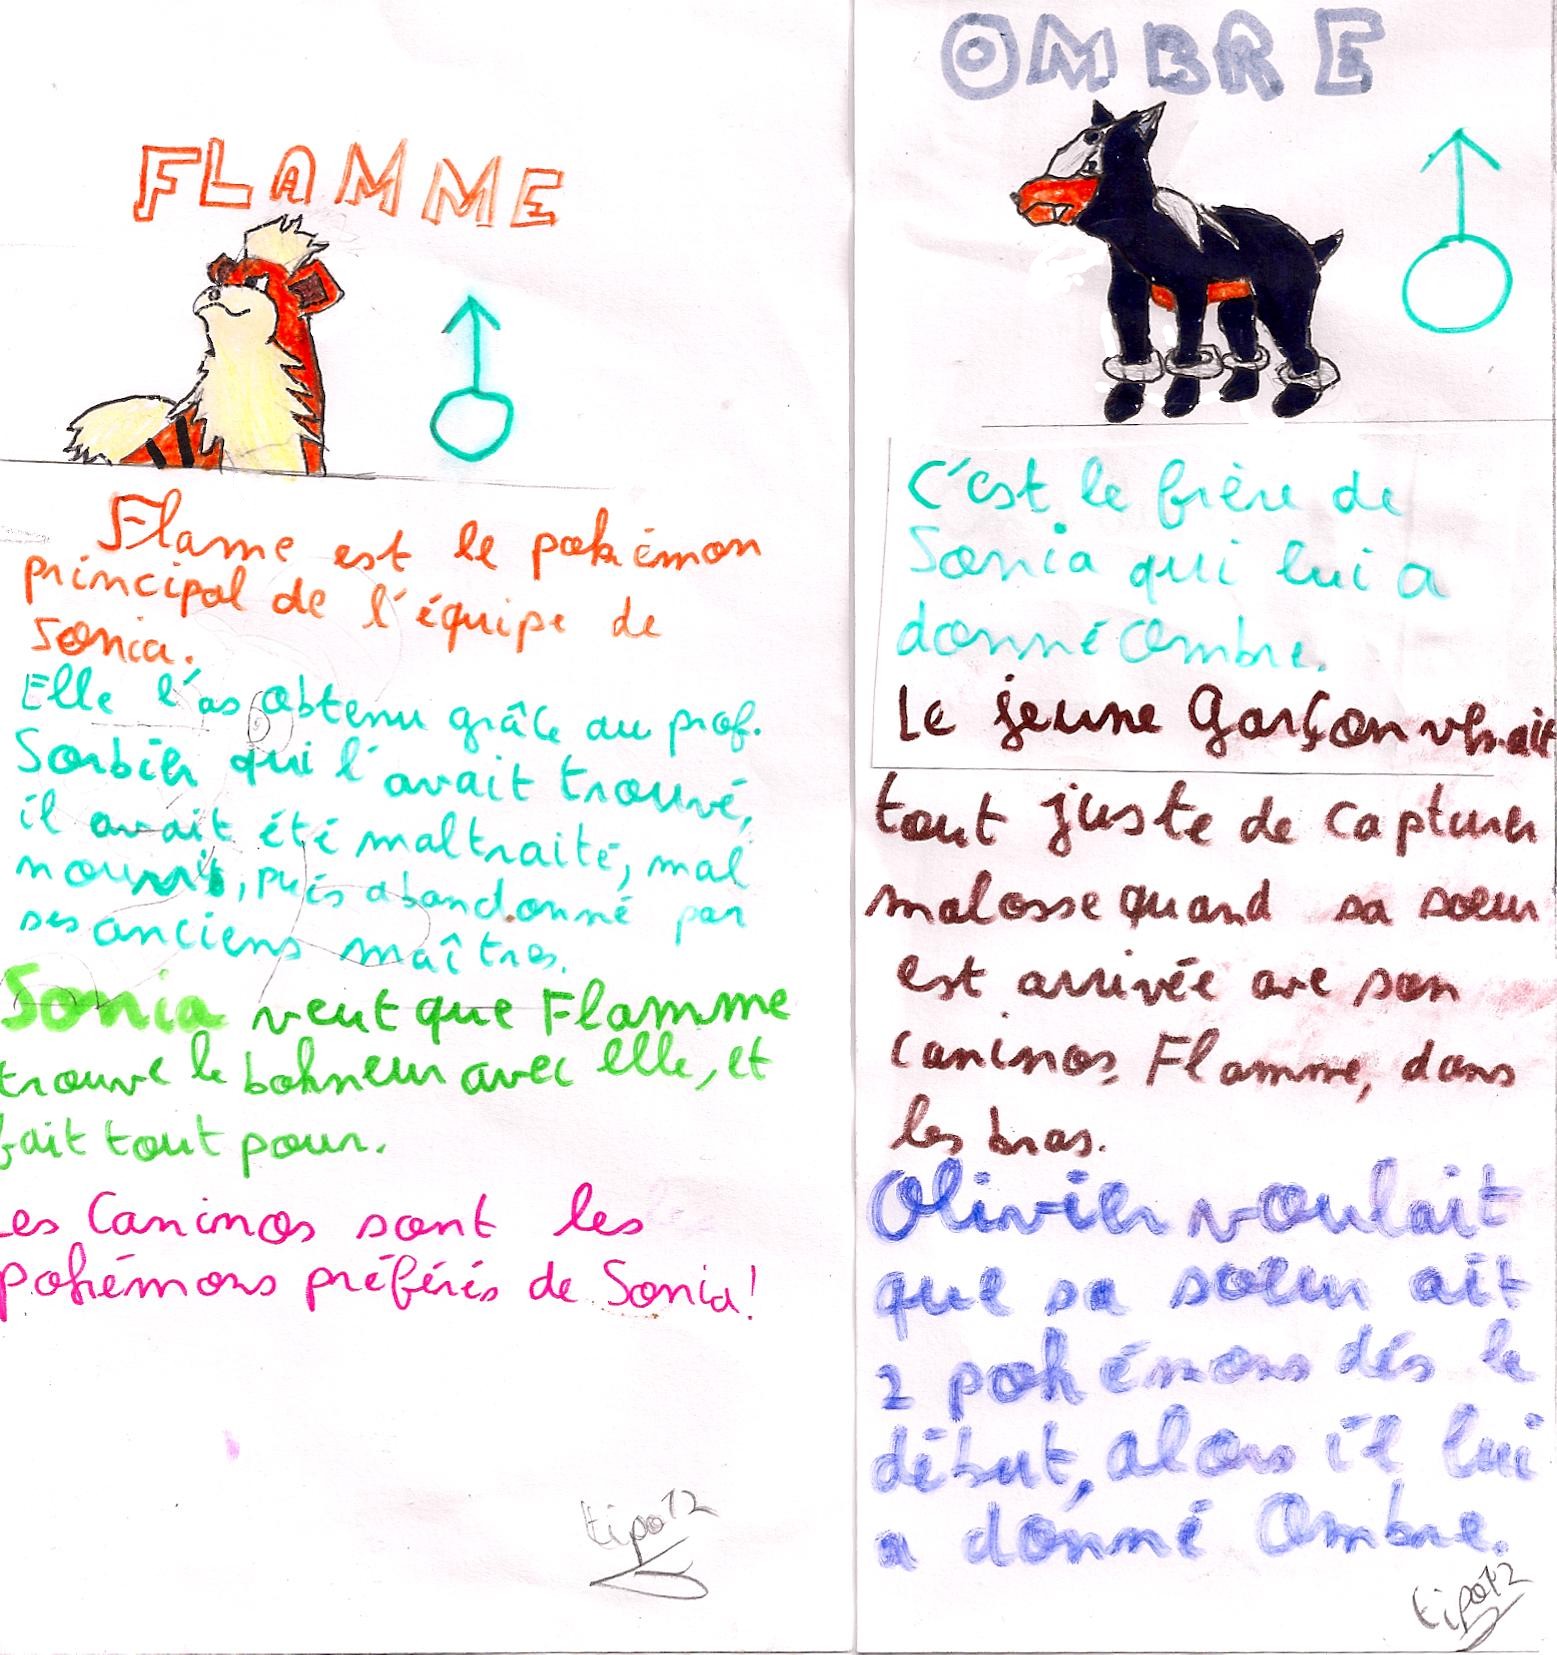 FLAMME
Flame est le pokémon
principal de l'équipe de
Sonia.
Elle l'as obtenu grâce au prof.
Sorbier qui l'avait trouvé,
il avait été maltraité, mal
nourris, puis abandonné par
ses anciens maîtres.
Sonia veut que Flamme
trouve le bohneur avec elle, et
fait tout pour.
Les Caninos sont les
pokémons préférés de Sonia!
tipo12
OMBRE
C'est le frère de
Sonia qui lui a
donné Ombre.
Le jeune garçon venait
tout juste de capturer
malosse quand sa soeur
est arrivée ave son
caninos, Flamme, dans
les bras.
Olivier voulait
que sa soeur ait
2 pokémons dés le
début, alors il lui
a donné Ombre.
tipo12